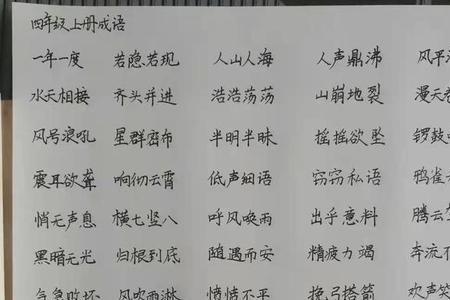 四年级上册成语
一年一度 若隐若现 人山人海 人声鼎沸 风平
水天相接 齐头并进 浩浩荡荡 山崩地裂 漫天
风号浪吼 星群密布 半明半昧 摇摇欲坠 锣鼓
震耳欲聋 响彻云霄 低声细语 窃窃私语 鸦雀
悄无声息 横七竖八 呼风唤雨 出乎意料 腾云
黑暗无光 归根到底 随遇而安 精疲力竭 奔流不
气急败坏 风吹雨淋 愤愤不平 挽弓搭箭 欢声